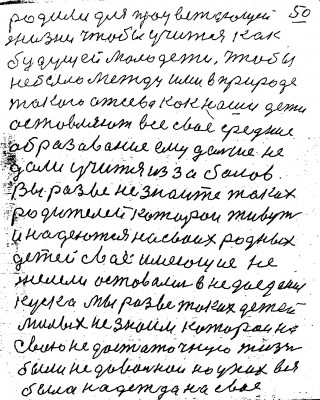 родили для процветающей 50
жизни чтобы учится как
будущей молодёжи, чтобы
небыло между ими в природе
такого как наши дети
оставляют все своё средние
образавание ему далие не
дали учится из за балов.
Вы разве не знаите таких
родителей которои живут
и надеются насваих родных
детей своё имеющие не
жмели оставалис в недоедани
куска мы разве таких детей
милых не знаим которои на
свою недостаточную жизн
были недовольной но у них вся
была надежда на свое